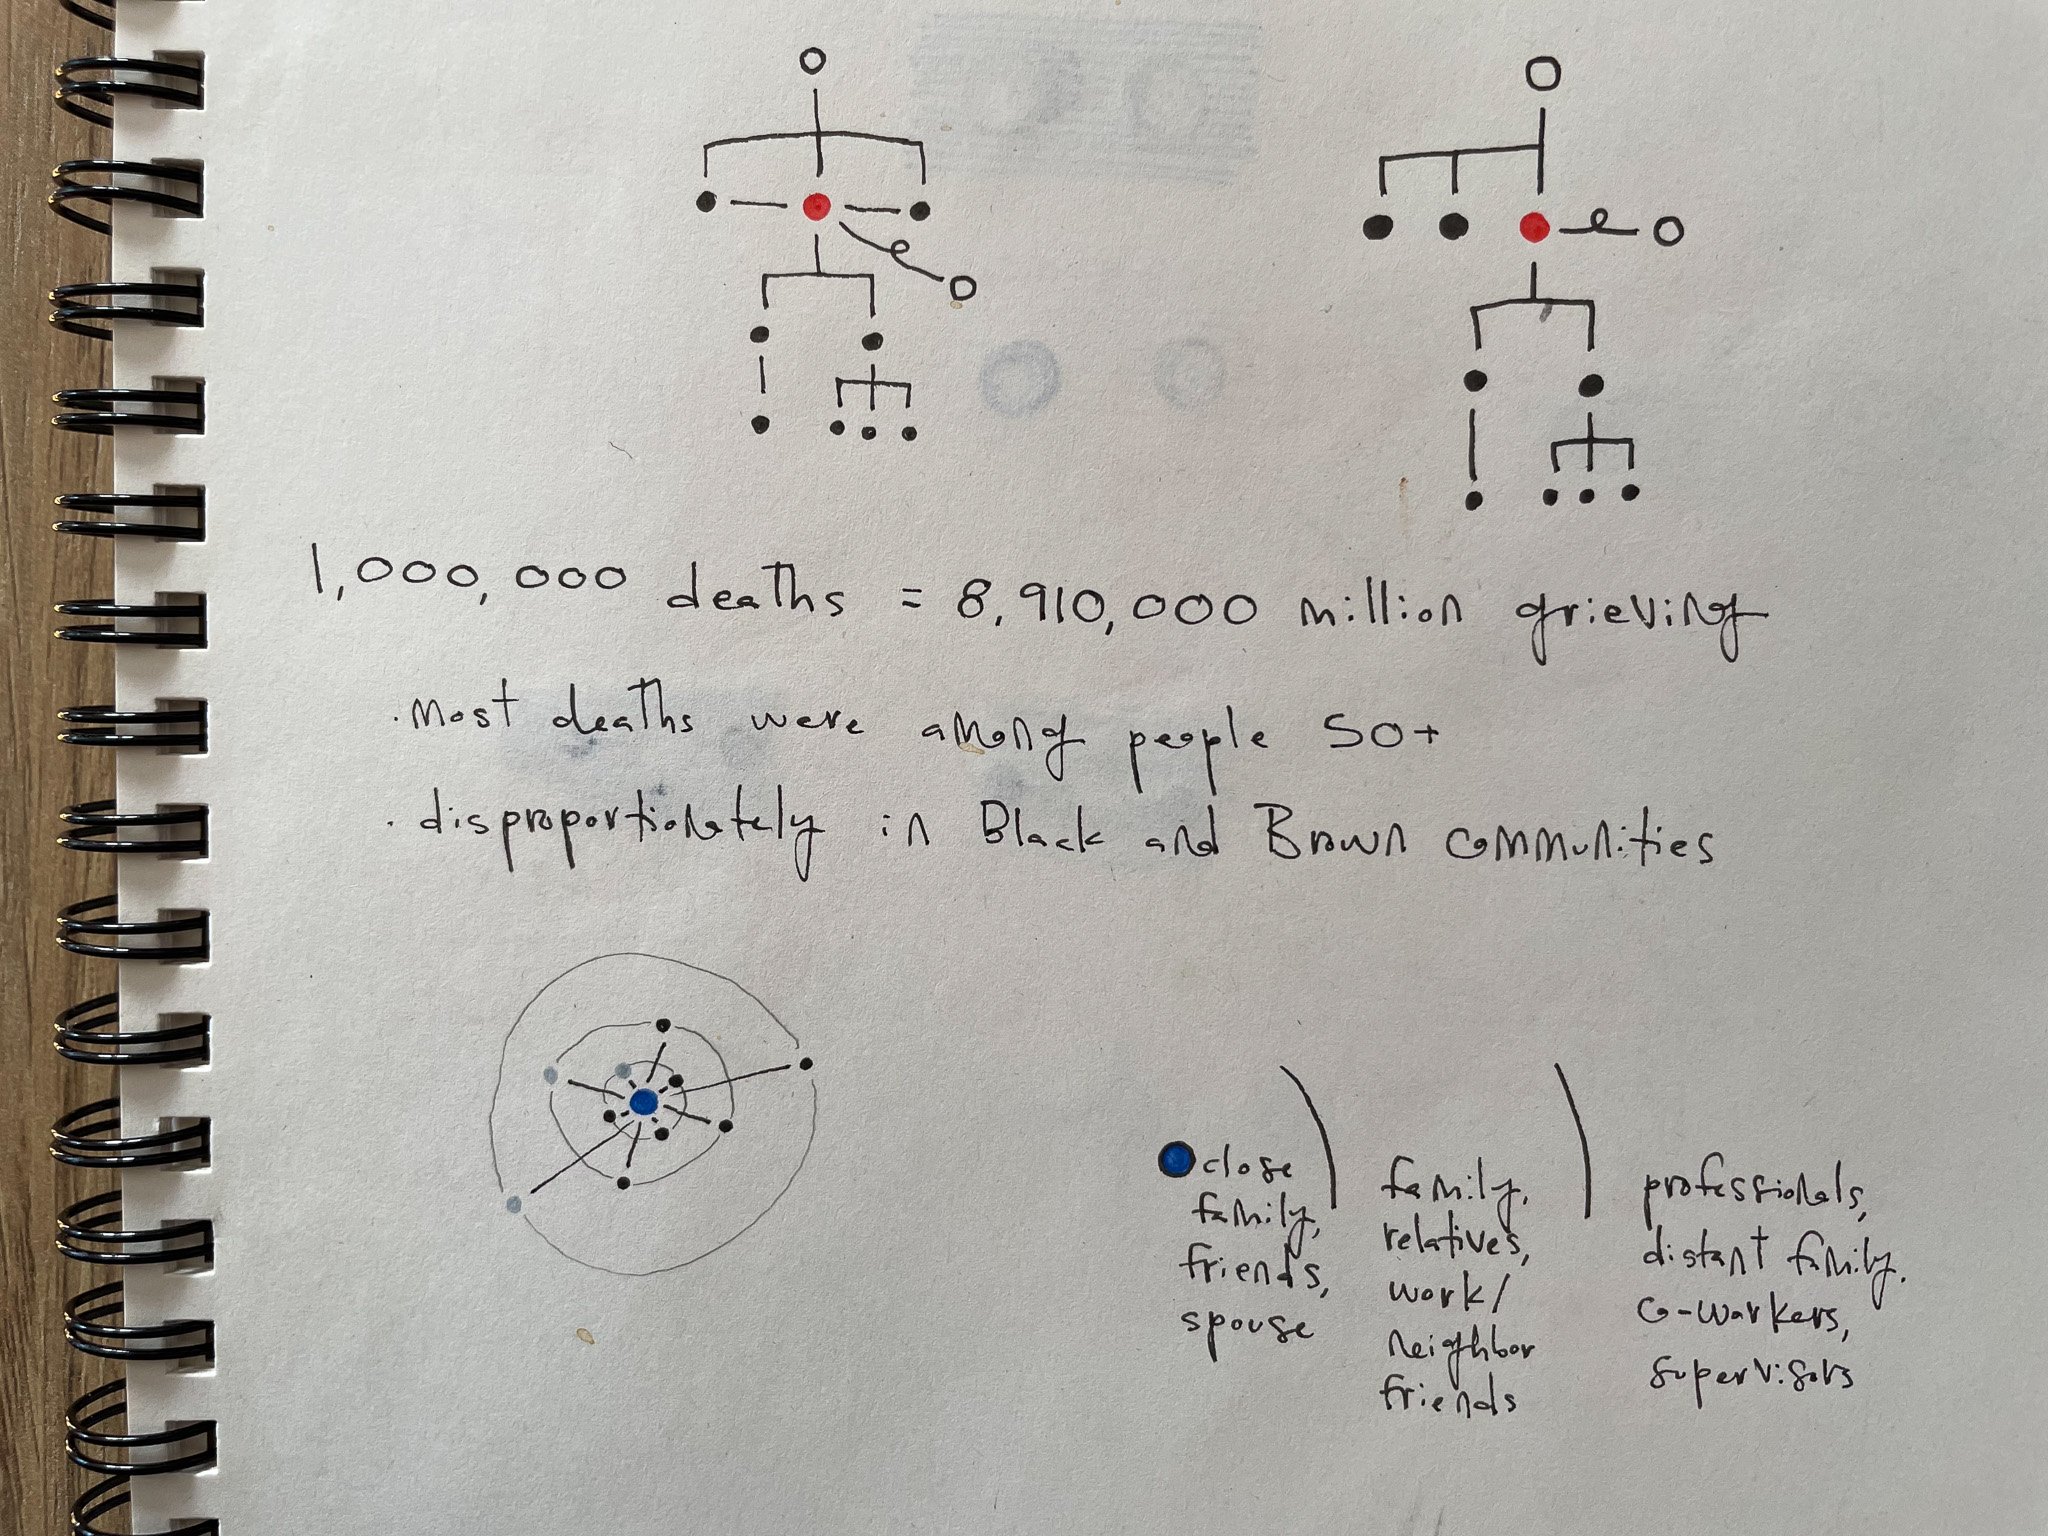 1,000,000 deaths = 8,910,000 million grieving
· most deaths were among people 50+
· disproportionately in Black and Brown communities
close
family,
friends,
spouse
family,
relatives,
work/
neighbor
friends
professionals,
distant family,
co-workers,
supervisors